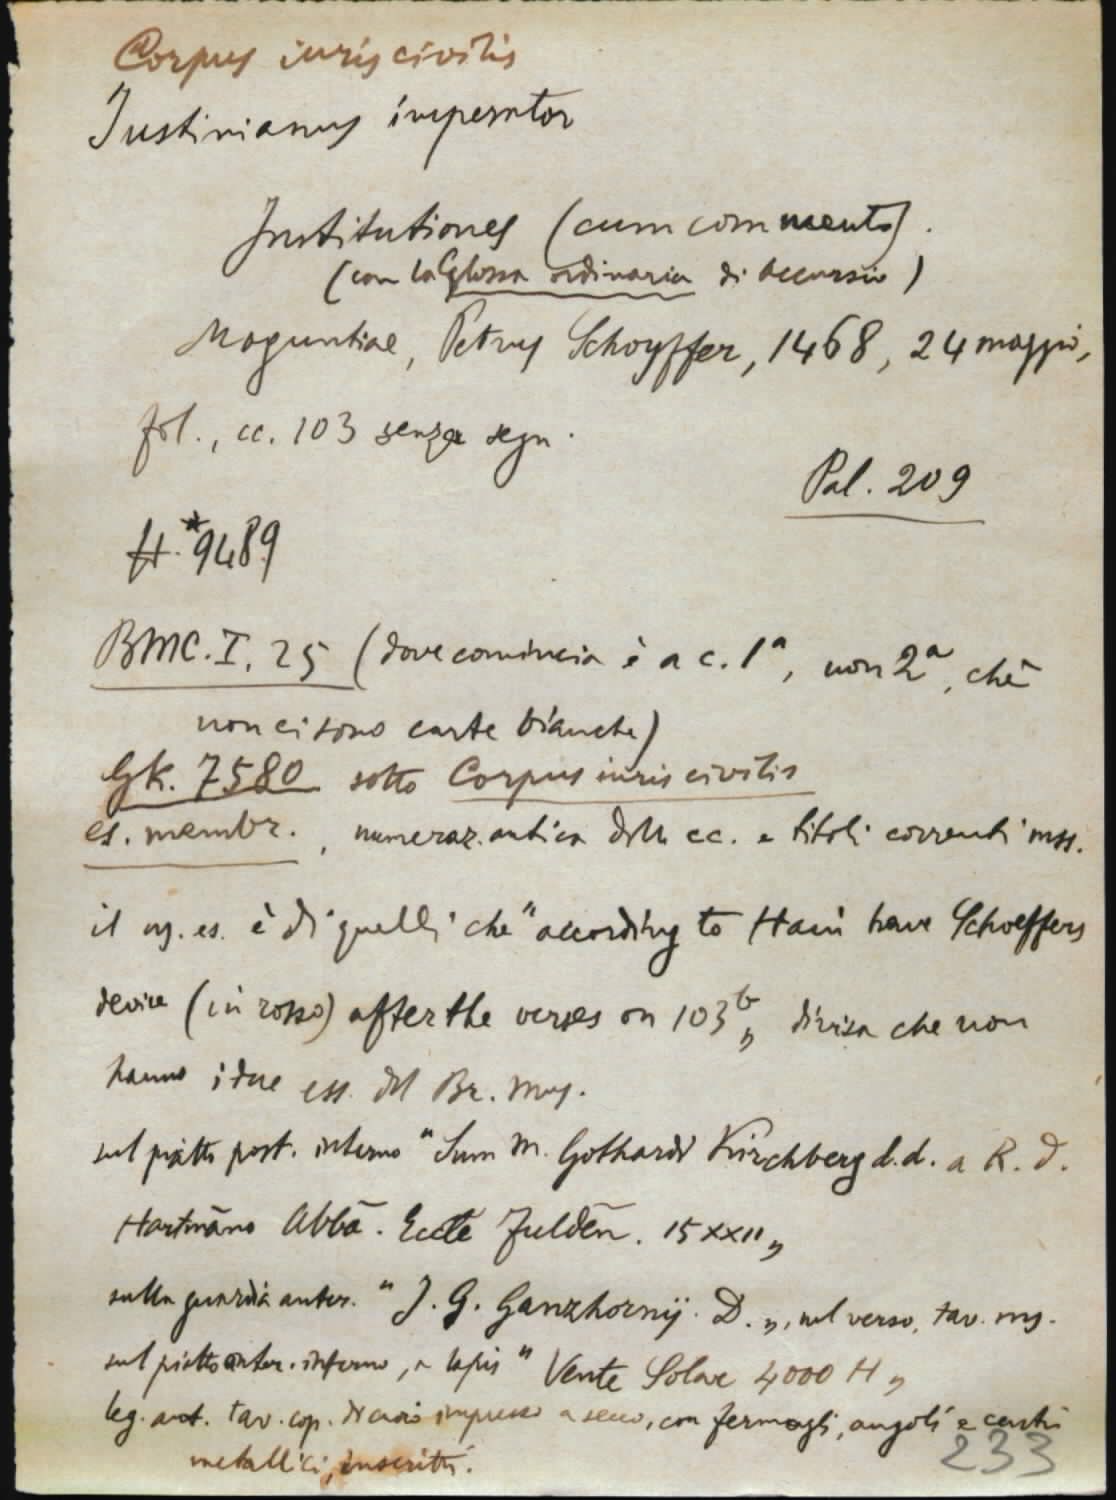 Corpus iuris civilis
Iustinianus imperator
Institutiones (cum commento).
(con la Glossa ordinaria di Accursio)
Moguntiae, Petrus Schoyffer, 1468, 24 maggio,
fol., cc. 103 senza segn.
Pal. 209
H.*9489
BMC. I, 25 (dove comincia è a c. 1ª, non 2ª, chè
non ci sono carte bianche)
GK. 7580 sotto Corpus iuris civilis
es. membr., numeraz. antica delle cc. e titoli correnti mss.
il ns. es. è di quelli che "according to Hain have Schoeffers
device (in rosso) after the verses on 103b„ divisa che non
hanno i due ess. del Br. Mus.
sul piatto post. interno "Sum M. Gothardi Kirchberg d.d. a R. d.
Hartmāno Abbā. Eccłē Fuldēn. 15xxii„
sulla guardia anter. "J. G. Ganzhornij. D.„, nel verso, tav. ms.
sul piatto anter. interno, a lapis "Vente Solar 4000 H„
leg. ant. tav. cop. di cuoio impresso a secco, con fermagli, angoli e centri
metallici, inscritti.
233